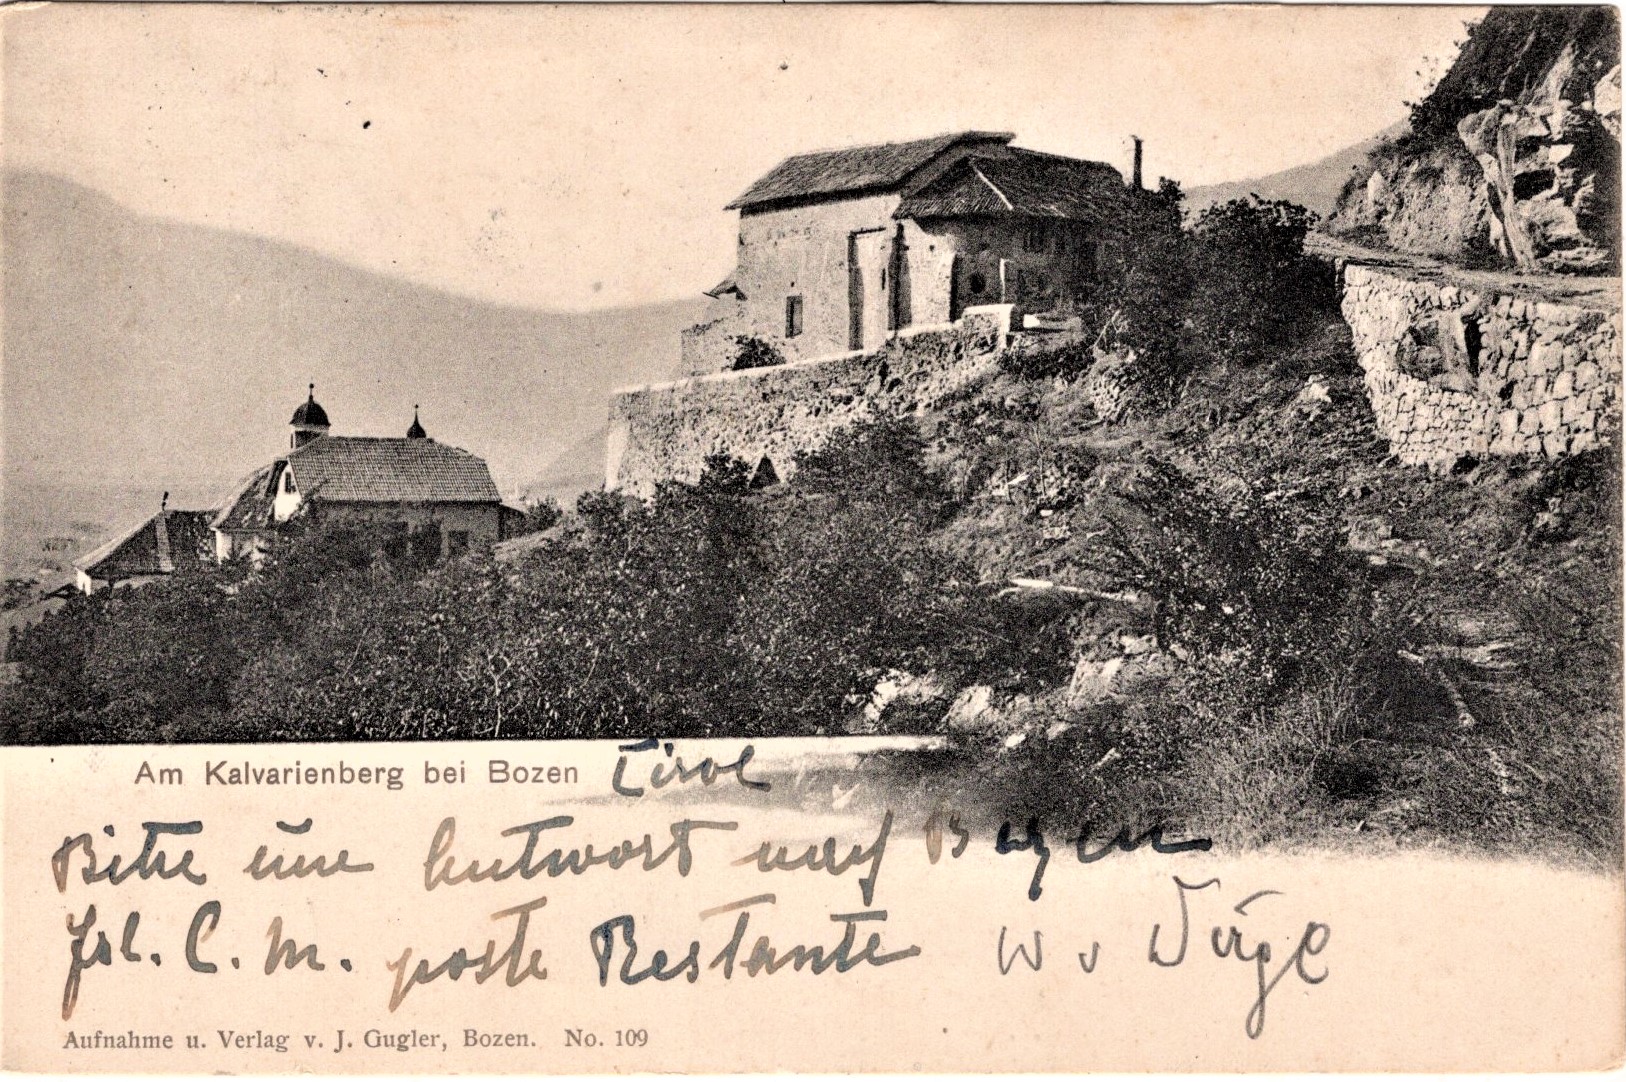 Am Kalvarienberg bei Bozen Tirol
Bitte um Antwort nach Bozen
Frl. C. M. poste Restante
Aufnahme u. Verlag v. J. Gugler, Bozen. No. 109